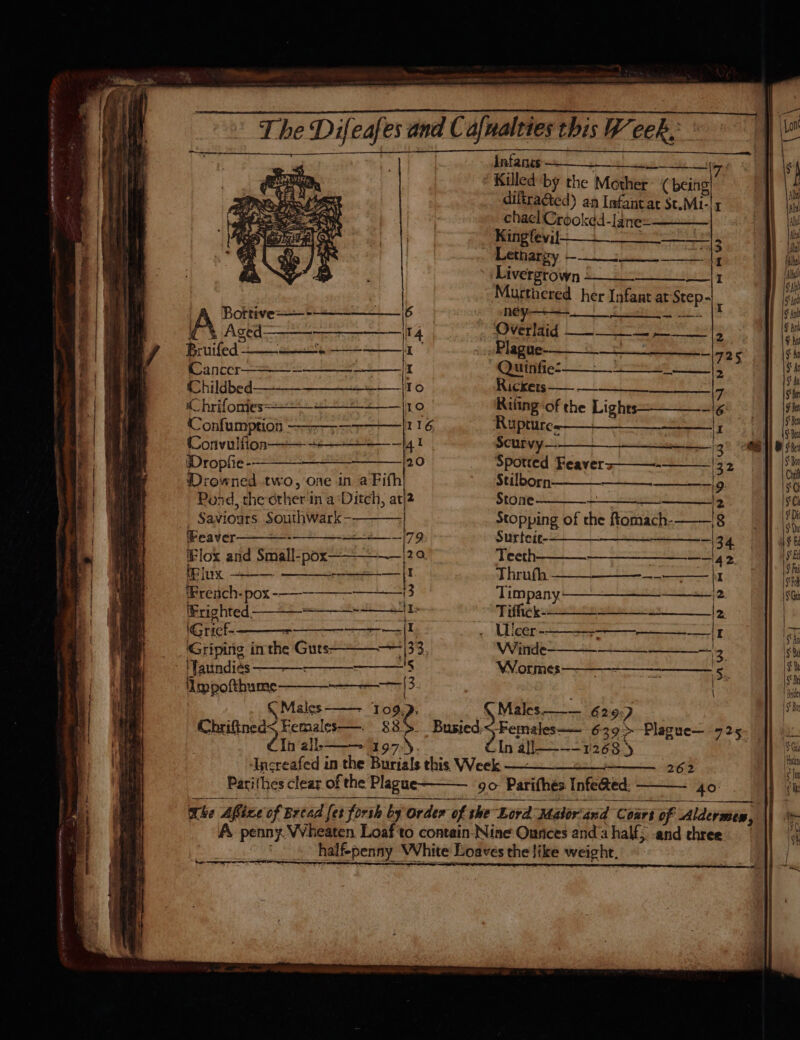 The Diſeaſes and Caſualties this Week,
Abortive 6
Aged 14
Bruiſed 1
Cancer 1
Childbed 10
Chriſomes 10
Conſumption 116
Convulſion 41
Dropſie 20
Drowned two, one in a Fiſh
Pond, the other in a Ditch, at 2
Saviours Southwark
Feaver 79
Flox and Small-pox 20
Flux 1
French-pox 3
Frighted 1
Grief 1
Griping in the Guts 33
Jaundies 5
Impoſthume 3
Infants 7
Killed by the Mother (being
diſtracted) an Infant at St. Mi- 1
chael Crooked-lane
Kingſevil 3
Lethargy 1
Livergrown 1
Murthered her Infant at Step- 1
ney
Overlaid 2
Plague 725
Quinſie 2
Rickets 7
Riſing of the Lights 6
Rupture 1
Scurvy 3
Spotted Feaver 32
Stilborn 9
Stone 2
Stopping of the ſtomach 8
Surfeit 34
Teeth 42
Thruſh 1
Timpany 2
Tiſſick 2
Ulcer 1
Winde 3
Wormes 5
Chriſtned Males 109 Females 88 In all 197
Buried Males 629 Females 639 In all 1268 Plague 725
Increaſed in the Burials this Week 262
Pariſhes clear of the Plague 90 Pariſhes Infected 40
The Aſſize of Bread ſet forth by Order of the Lord Maior and Court of Aldermen,
A penny Wheaten Loaf to contain Nine Ounces and a half, and three
half-penny White Loaves the like weight.